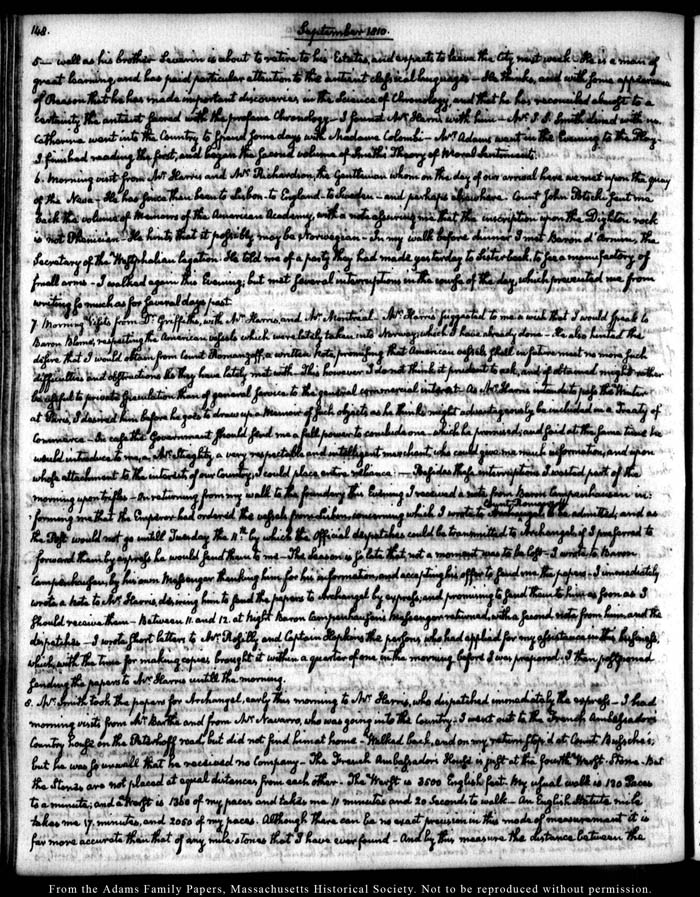 148.
September 1810.
5— well as his brother Severin is about to retire to his Estates, and expects to leave the City next week. He is a man of
great learning, and has paid particular attention to the antient classical languages — He thinks, and with some appearance
of Reason that he has made important discoveries in the Science of Chronology, and that he has reconciled almost to a
certainty the antient sacred with the profane Chronology — I found Mr. Harris with him — Mr. J. S. Smith dined with us
Catherine went into the Country to spend some days with Madame Colombi — Mrs. Adams went in the Evening to the Play.
I finished reading the first, and began the second volume of Smith's Theory of Moral Sentiments.
6. Morning visit from Mr. Harris and Mr. Richardson, the Gentleman whom on the day of our arrival here we met upon the quay
of the Neva — He has since then been to Lisbon — to England — to Sweden — and perhaps elsewhere. Count John Potocki sent me
back the volume of Memoirs of the American Academy, with a note assuring me that the inscription upon the Dighton rock
is not Phenician — He hints that it possibly may be Norwegian — In my walk before dinner I met Baron d'Arnim, the
Secretary of the Westphalian legation. He told me of a party they had made yesterday to Sisterback, to see a manufactory of
small arms — I walked again this Evening; but met several interruptions in the course of the day, which prevented me from
writing so much as for several days past.
7. Morning visits from Dr. Griffith, with Mr. Harris, and Mr. Montreal. Mr. Harris suggested to me a wish that I would speak to
Baron Blome, respecting the American vessels which were lately taken into Norway; which I have already done — He also hinted the
desire that I would obtain from Count Romanzoff, a written Note, promising that American vessels shall in future meet no more such
difficulties and obstructions as they have lately met with. This however I do not think it prudent to ask, and if obtained, might rather
be useful to private speculation than of general service to the general commercial interest. As Mr. Harris intends to pass the Winter
at Paris, I desired him before he goes to draw up a Memoir of such objects as he thinks might advantageously be included in a Treaty of
Commerce — In case the Government should send me a full power to conclude one — which he promised; and said at the same time he
would introduce to me, a Mr. a very respectable and intelligent merchant, who could give me much information, and upon
whose attachment to the interest of our Country, I could place entire reliance: — Besides these interruptions I wasted part of the
morning upon trifles — On returning from my walk to the foundery this Evening I received a note from Baron Campenhausen in:
Count Romanzoff
forming me that the Emperor had ordered the vessels from Lisbon, concerning which I wrote to be admitted; and as
the Post would not go untill Tuesday the 11th. by which the Official dispatches could be transmitted to Archangel, if I preferred to
forward them by express he would send them to me — The Season is so late that, not a moment was to be lost — I wrote to Baron
Campenhausen, by his own Messenger thanking him for his information, and accepting his offer to send me the papers — I immediately
wrote a Note to Mr. Harris, desiring him to send the papers to Archangel by express, and promising to send them to him as soon as I
should receive them — Between 11. and 12. at Night Baron Campenhausen's Messenger returned, with a second Note from him, and the
dispatches — I wrote short letters to Mr. and Captain Hopkins the persons, who had applied for my assistance in this business,
which, with the time for making copies brought it within a quarter of one in the morning before I was prepared. I then postponed
sending the papers to Mr. Harris untill the morning.
8. Mr. Smith took the papers for Archangel, early this morning to Mr. Harris, who dispatched immediately the express — I had
morning visits from Mr. Barthe and from Mr. Navarro, who was going into the Country. I went out to the French Ambassador's
Country house on the Peterhoff road, but did not find him at home — Walked back, and on my return stop'd at Count Bussche's;
but he was so unwell that he received no Company — The French Ambassador's House is just at the fourth Werst-Stone. But
the Stones are not placed at equal distances from each other — The Werst is 3500 English feet. My usual walk is 120 Paces
to a minute; and a Werst is 1360 of my paces and takes me 11 minutes and 20 Seconds to walk — An English Statute mile
takes me 17. minutes, and 2050 of my paces. Although there can be no exact precision in this mode of measurement it is
far more accurate than that of any mile stones that I have ever found — And by this measure the distance between the
From the Adams Family Papers, Massachusetts Historical Society. Not to be reproduced without permission.